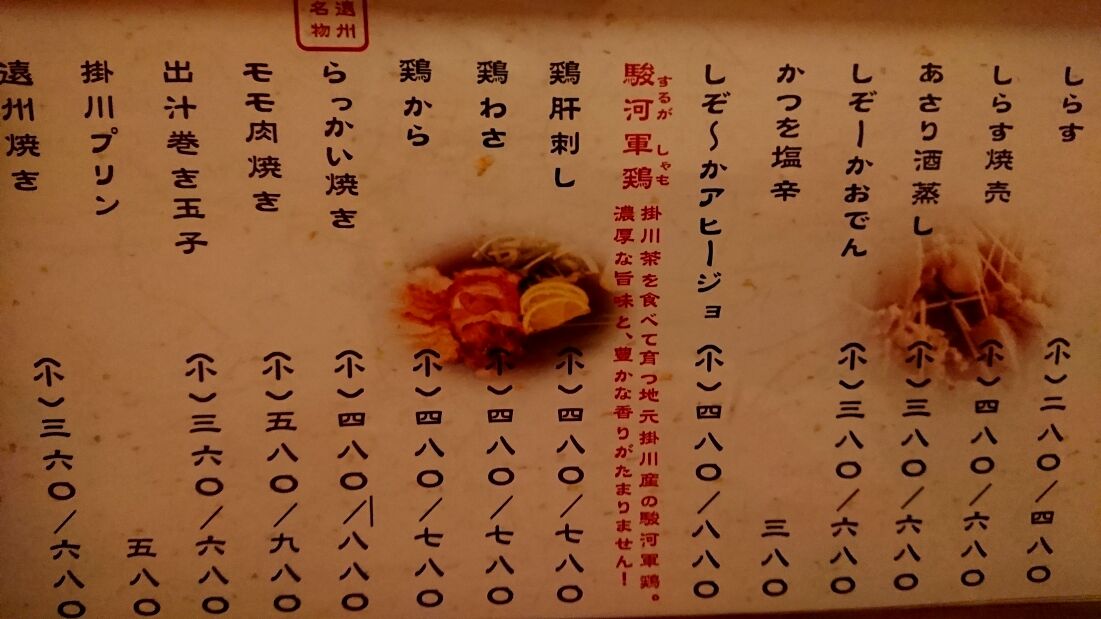 しらす (小)二八〇/四八〇
しらす焼売 (小)四八〇/六八〇
あさり酒蒸し (小)三八〇/六八〇
しぞーかおでん (小)三八〇/六八〇
かつを塩辛 三八〇
しぞ〜かアヒージョ (小)四八〇/八八〇
駿河軍鶏
するが しゃも
掛川茶を食べて育つ地元掛川産の駿河軍鶏。
濃厚な旨味と、豊かな香りがたまりません！
鶏肝刺し (小)四八〇/七八〇
鶏わさ (小)四八〇/七八〇
鶏から (小)四八〇/七八〇
遠州
名物
らっかい焼き (小)四八〇/八八〇
モモ肉焼き (小)五八〇/九八〇
出汁巻き玉子 (小)三六〇/六八〇
掛川プリン 五八〇
遠州焼き (小)三六〇/六八〇